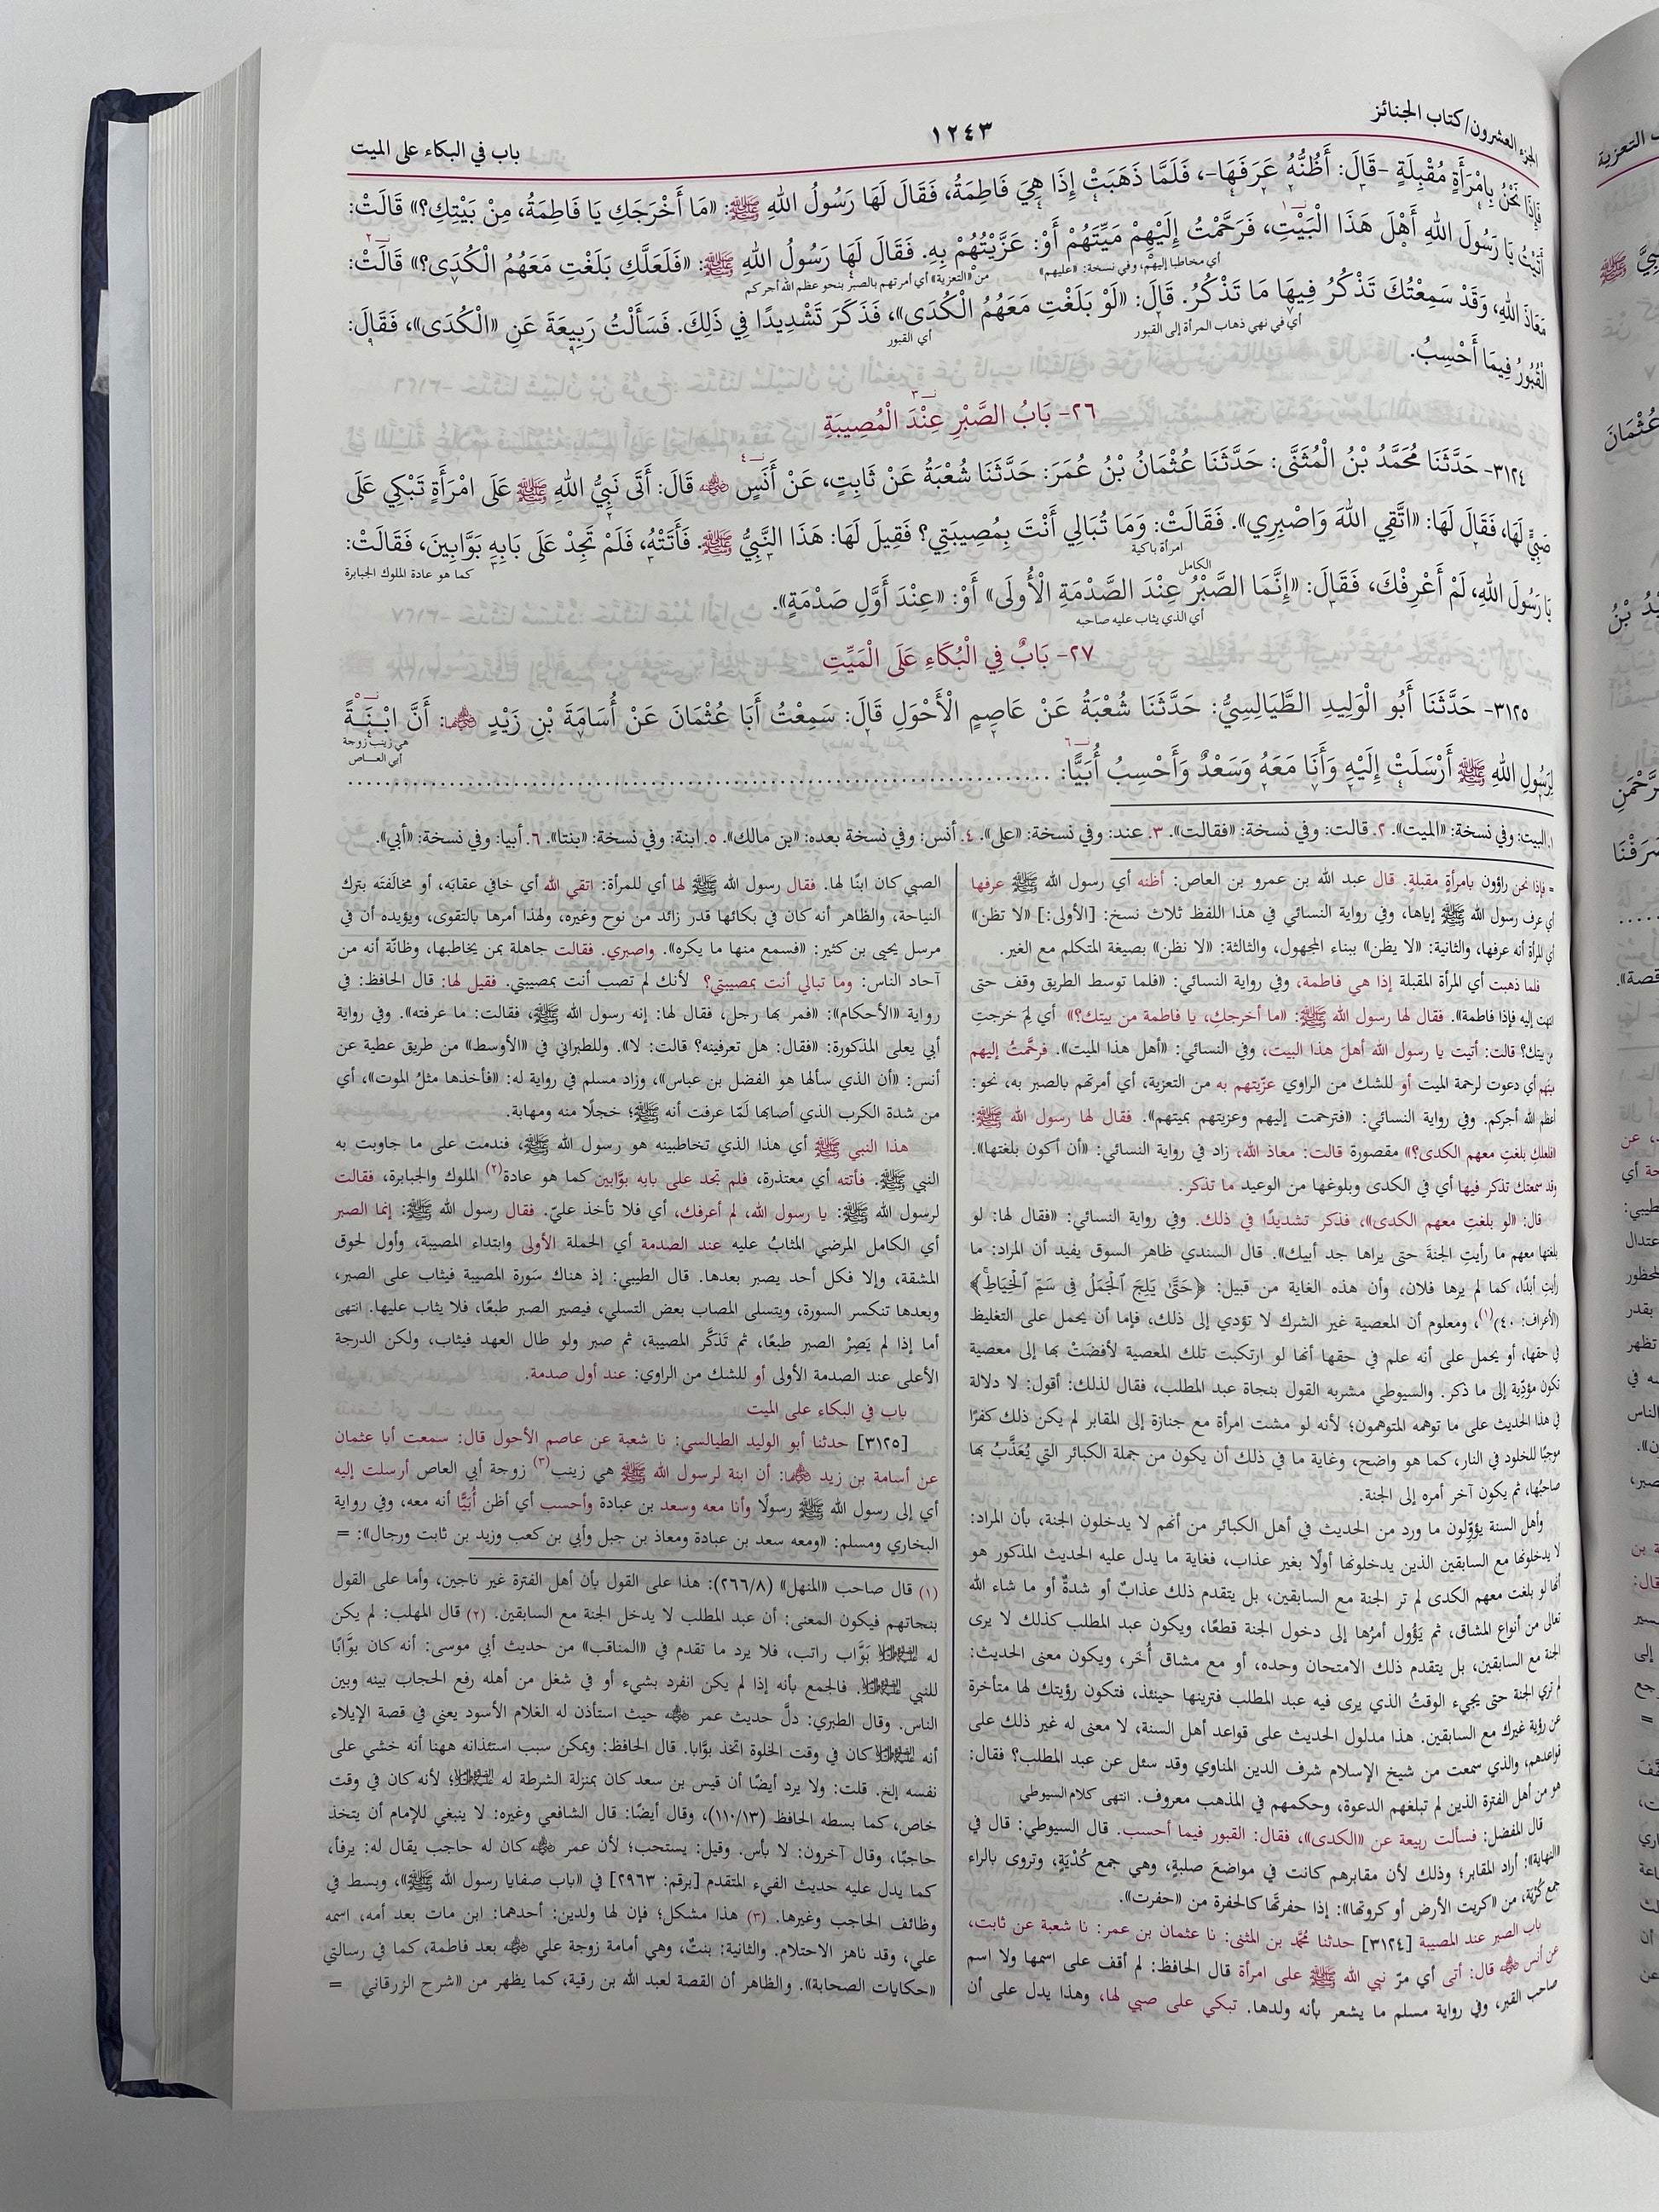 الجزء العشرون/كتاب الجنائز
١٢٤٣
باب في البكاء على الميت
فَإِذَا نَحْنُ بِامْرَأَةٍ مُقْبِلَةٍ -قَالَ: أَظُنُّهُ عَرَفَهَا-، فَلَمَّا ذَهَبَتْ إِذَا هِيَ فَاطِمَةُ، فَقَالَ لَهَا رَسُولُ اللهِ ﷺ: «مَا أَخْرَجَكِ يَا فَاطِمَةُ، مِنْ بَيْتِكِ؟» قَالَتْ:
أَتَيْتُ يَا رَسُولَ اللهِ أَهْلَ هَذَا الْبَيْتِ، فَرَحَّمْتُ إِلَيْهِمْ مَيِّتَهُمْ أَوْ: عَزَّيْتُهُمْ بِهِ. فَقَالَ لَهَا رَسُولُ اللهِ ﷺ: «فَلَعَلَّكِ بَلَغْتِ مَعَهُمُ الْكُدَى؟» قَالَتْ:
أي مخاطبا إليهم، وفي نسخة: «عليهم»
من «التعزية» أي أمرتهم بالصبر بنحو عظم الله أجركم
مَعَاذَ اللهِ، وَقَدْ سَمِعْتُكَ تَذْكُرُ فِيهَا مَا تَذْكُرُ. قَالَ: «لَوْ بَلَغْتِ مَعَهُمُ الْكُدَى»، فَذَكَرَ تَشْدِيدًا فِي ذَلِكَ. فَسَأَلْتُ رَبِيعَةَ عَنِ «الْكُدَى»، فَقَالَ:
أي في نهي ذهاب المرأة إلى القبور
أي القبور
الْقُبُورُ فِيمَا أَحْسِبُ.
٢٦- بَابُ الصَّبْرِ عِنْدَ الْمُصِيبَةِ
٣١٢٤- حَدَّثَنَا مُحَمَّدُ بْنُ الْمُثَنَّى: حَدَّثَنَا عُثْمَانُ بْنُ عُمَرَ: حَدَّثَنَا شُعْبَةُ عَنْ ثَابِتٍ، عَنْ أَنَسٍ ﷺ قَالَ: أَتَى نَبِيُّ اللهِ ﷺ عَلَى امْرَأَةٍ تَبْكِي عَلَى
صَبِيٍّ لَهَا، فَقَالَ لَهَا: «اتَّقِي اللهَ وَاصْبِرِي». فَقَالَتْ: وَمَا تُبَالِي أَنْتَ بِمُصِيبَتِي؟ فَقِيلَ لَهَا: هَذَا النَّبِيُّ ﷺ. فَأَتَتْهُ، فَلَمْ تَجِدْ عَلَى بَابِهِ بَوَّابِينَ، فَقَالَتْ:
امرأة باكية
كما هو عادة الملوك الجبابرة
الكامل
يَا رَسُولَ اللهِ، لَمْ أَعْرِفْكَ، فَقَالَ: «إِنَّمَا الصَّبْرُ عِنْدَ الصَّدْمَةِ الْأُولَى» أَوْ: «عِنْدَ أَوَّلِ صَدْمَةٍ».
أي الذي يثاب عليه صاحبه
٢٧- بَابٌ فِي الْبُكَاءِ عَلَى الْمَيِّتِ
٣١٢٥- حَدَّثَنَا أَبُو الْوَلِيدِ الطَّيَالِسِيُّ: حَدَّثَنَا شُعْبَةُ عَنْ عَاصِمٍ الْأَحْوَلِ قَالَ: سَمِعْتُ أَبَا عُثْمَانَ عَنْ أُسَامَةَ بْنِ زَيْدٍ: أَنَّ ابْنَةً
هي زينب زوجة
أبي العاص
لِرَسُولِ اللهِ ﷺ أَرْسَلَتْ إِلَيْهِ وَأَنَا مَعَهُ وَسَعْدٌ وَأَحْسِبُ أُبَيًّا:
١. البيت: وفي نسخة: «الميت». ٢. قالت: وفي نسخة: «فقالت». ٣. عند: وفي نسخة: «على». ٤. أنس: وفي نسخة بعده: «بن مالك». ٥. ابنة: وفي نسخة: «بنتا». ٦. أبيا: وفي نسخة: «أبي».
= فإذا نحن راؤون بامرأةٍ مقبلةٍ. قال عبد الله بن عمرو بن العاص: أظنه أي رسول الله ﷺ عرفها
أي عرف رسول الله ﷺ إياها، وفي رواية النسائي في هذا اللفظ ثلاث نسخ: [الأولى:] «لا تظن»
أي المرأة أنه عرفها، والثانية: «لا يظن» ببناء المجهول، والثالثة: «لا نظن» بصيغة المتكلم مع الغير.
فلما ذهبت أي المرأة المقبلة إذا هي فاطمة، وفي رواية النسائي: «فلما توسط الطريق وقف حتى
انتهت إليه فإذا فاطمة». فقال لها رسول الله ﷺ: «ما أخرجكِ، يا فاطمة من بيتك؟» أي لِمَ خرجتِ
من بيتك؟ قالت: أتيت يا رسول الله أهلَ هذا البيت، وفي النسائي: «أهل هذا الميت». فرحَّمتُ إليهم
ميتهم أي دعوت لرحمة الميت أو للشك من الراوي عزّيتهم به من التعزية، أي أمرتهم بالصبر به، نحو:
أعظم الله أجركم. وفي رواية النسائي: «فترحمت إليهم وعزيتهم بميتهم». فقال لها رسول الله ﷺ:
«فلعلكِ بلغتِ معهم الكدى؟» مقصورة قالت: معاذ الله، زاد في رواية النسائي: «أن أكون بلغتها».
وقد سمعتك تذكر فيها أي في الكدى وبلوغها من الوعيد ما تذكر.
قال: «لو بلغتِ معهم الكدى»، فذكر تشديدًا في ذلك. وفي رواية النسائي: «فقال لها: لو
بلغتها معهم ما رأيتِ الجنةَ حتى يراها جد أبيك». قال السندي ظاهر السوق يفيد أن المراد: ما
رأيتِ أبدًا، كما لم يرها فلان، وأن هذه الغاية من قبيل: ﴿حَتَّىٰ يَلِجَ ٱلْجَمَلُ فِى سَمِّ ٱلْخِيَاطِ﴾
(الأعراف: ٤٠)(١)، ومعلوم أن المعصية غير الشرك لا تؤدي إلى ذلك، فإما أن يحمل على التغليظ
في حقها، أو يحمل على أنه علم في حقها أنها لو ارتكبت تلك المعصية لأفضَتْ بها إلى معصية
تكون مؤدِّية إلى ما ذكر. والسيوطي مشربه القول بنجاة عبد المطلب، فقال لذلك: أقول: لا دلالة
في هذا الحديث على ما توهمه المتوهمون؛ لأنه لو مشت امرأة مع جنازة إلى المقابر لم يكن ذلك كفرًا
موجبًا للخلود في النار، كما هو واضح، وغاية ما في ذلك أن يكون من جملة الكبائر التي يُعَذَّبُ بها
صاحبُها، ثم يكون آخر أمره إلى الجنة.
وأهل السنة يؤوِّلون ما ورد من الحديث في أهل الكبائر من أنهم لا يدخلون الجنة، بأن المراد:
لا يدخلونها مع السابقين الذين يدخلونها أولًا بغير عذاب، فغاية ما يدل عليه الحديث المذكور هو
أنها لو بلغت معهم الكدى لم تر الجنة مع السابقين، بل يتقدم ذلك عذابٌ أو شدةٌ أو ما شاء الله
تعالى من أنواع المشاق، ثم يَؤُول أمرُها إلى دخول الجنة قطعًا، ويكون عبد المطلب كذلك لا يرى
الجنة مع السابقين، بل يتقدم ذلك الامتحان وحده، أو مع مشاق أُخَر، ويكون معنى الحديث:
لم تري الجنة حتى يجيء الوقتُ الذي يرى فيه عبد المطلب فترينها حينئذ، فتكون رؤيتك لها متأخرة
عن رؤية غيرك مع السابقين. هذا مدلول الحديث على قواعد أهل السنة، لا معنى له غير ذلك على
قواعدهم، والذي سمعت من شيخ الإسلام شرف الدين المناوي وقد سئل عن عبد المطلب؟ فقال:
هو من أهل الفترة الذين لم تبلغهم الدعوة، وحكمهم في المذهب معروف. انتهى كلام السيوطي
قال المفضل: فسألت ربيعة عن «الكدى»، فقال: القبور فيما أحسب. قال السيوطي: قال في
«النهاية»: أراد المقابر؛ وذلك لأن مقابرهم كانت في مواضعَ صلبةٍ، وهي جمع كُدْيَةٍ، وتروى بالراء
جمع كُرْيَة، من «كريت الأرض أو كروتها»: إذا حفرتَها كالحفرة من «حفرت».
باب الصبر عند المصيبة [٣١٢٤] حدثنا محمَّد بن المثنى: نا عثمان بن عمر: نا شعبة عن ثابت،
عن أنس قال: أتى أي مرّ نبي الله ﷺ على امرأة قال الحافظ: لم أقف على اسمها ولا اسم
صاحب القبر، وفي رواية مسلم ما يشعر بأنه ولدها. تبكي على صبي لها، وهذا يدل على أن
الصبي كان ابنًا لها. فقال رسول الله ﷺ لها أي للمرأة: اتقي الله أي خافي عقابَه، أو مخالَفتَه بترك
النياحة، والظاهر أنه كان في بكائها قدر زائد من نوح وغيره، ولهذا أمرها بالتقوى، ويؤيده أن في
مرسل يحيى بن كثير: «فسمع منها ما يكره». واصبري. فقالت جاهلة بمن يخاطبها، وظانّة أنه من
آحاد الناس: وما تبالي أنت بمصيبتي؟ لأنك لم تصب أنت بمصيبتي. فقيل لها: قال الحافظ: في
رواية «الأحكام»: «فمر بها رجل، فقال لها: إنه رسول الله ﷺ، فقالت: ما عرفته». وفي رواية
أبي يعلى المذكورة: «فقال: هل تعرفينه؟ قالت: لا». وللطبراني في «الأوسط» من طريق عطية عن
أنس: «أن الذي سألها هو الفضل بن عباس»، وزاد مسلم في رواية له: «فأخذها مثلُ الموت»، أي
من شدة الكرب الذي أصابها لَمّا عرفت أنه ﷺ؛ خجلًا منه ومهابة.
هذا النبي ﷺ أي هذا الذي تخاطبينه هو رسول الله ﷺ، فندمت على ما جاوبت به
النبي ﷺ. فأتته أي معتذرة، فلم تجد على بابه بوَّابين كما هو عادة(٢) الملوك والجبابرة، فقالت
لرسول الله ﷺ: يا رسول الله، لم أعرفك، أي فلا تأخذ عليّ. فقال رسول الله ﷺ: إنما الصبر
أي الكامل المرضي المثابُ عليه عند الصدمة أي الحملة الأولى وابتداء المصيبة، وأول لحوق
المشقة، وإلا فكل أحد يصبر بعدها. قال الطيبي: إذ هناك سَورة المصيبة فيثاب على الصبر،
وبعدها تنكسر السورة، ويتسلى المصاب بعض التسلي، فيصير الصبر طبعًا، فلا يثاب عليها. انتهى
أما إذا لم يَصِرْ الصبر طبعًا، ثم تَذكَّر المصيبة، ثم صبر ولو طال العهد فيثاب، ولكن الدرجة
الأعلى عند الصدمة الأولى أو للشك من الراوي: عند أول صدمة.
باب في البكاء على الميت
[٣١٢٥] حدثنا أبو الوليد الطيالسي: نا شعبة عن عاصم الأحول قال: سمعت أبا عثمان
عن أسامة بن زيد: أن ابنة لرسول الله ﷺ هي زينب(٣) زوجة أبي العاص أرسلت إليه
أي إلى رسول الله ﷺ رسولًا وأنا معه وسعد بن عبادة وأحسب أي أظن أُبَيًّا أنه معه، وفي رواية
البخاري ومسلم: «ومعه سعد بن عبادة ومعاذ بن جبل وأبي بن كعب وزيد بن ثابت ورجال»: =
(١) قال صاحب «المنهل» (٢٦٦/٨): هذا على القول بأن أهل الفترة غير ناجين، وأما على القول
بنجاتهم فيكون المعنى: أن عبد المطلب لا يدخل الجنة مع السابقين. (٢) قال المهلب: لم يكن
له بَوَّاب راتب، فلا يرد ما تقدم في «المناقب» من حديث أبي موسى: أنه كان بوَّابًا
للنبي. فالجمع بأنه إذا لم يكن انفرد بشيء أو في شغل من أهله رفع الحجاب بينه وبين
الناس. وقال الطبري: دلَّ حديث عمر حيث استأذن له الغلام الأسود يعني في قصة الإيلاء
أنه كان في وقت الخلوة اتخذ بوَّابا. قال الحافظ: ويمكن سبب استئذانه ههنا أنه خشي على
نفسه إلخ. قلت: ولا يرد أيضًا أن قيس بن سعد كان بمنزلة الشرطة له؛ لأنه كان في وقت
خاص، كما بسطه الحافظ (١١٠/١٣)، وقال أيضًا: قال الشافعي وغيره: لا ينبغي للإمام أن يتخذ
حاجبًا، وقال آخرون: لا بأس. وقيل: يستحب؛ لأن عمر كان له حاجب يقال له: يرفأ،
كما يدل عليه حديث الفيء المتقدم [برقم: ٢٩٦٣] في «باب صفايا رسول الله ﷺ»، وبسط في
وظائف الحاجب وغيرها. (٣) هذا مشكل؛ فإن لها ولدين: أحدهما: ابن مات بعد أمه، اسمه
علي، وقد ناهز الاحتلام. والثانية: بنتٌ، وهي أمامة زوجة علي بعد فاطمة، كما في رسالتي
«حكايات الصحابة». والظاهر أن القصة لعبد الله بن رقية، كما يظهر من «شرح الزرقاني =